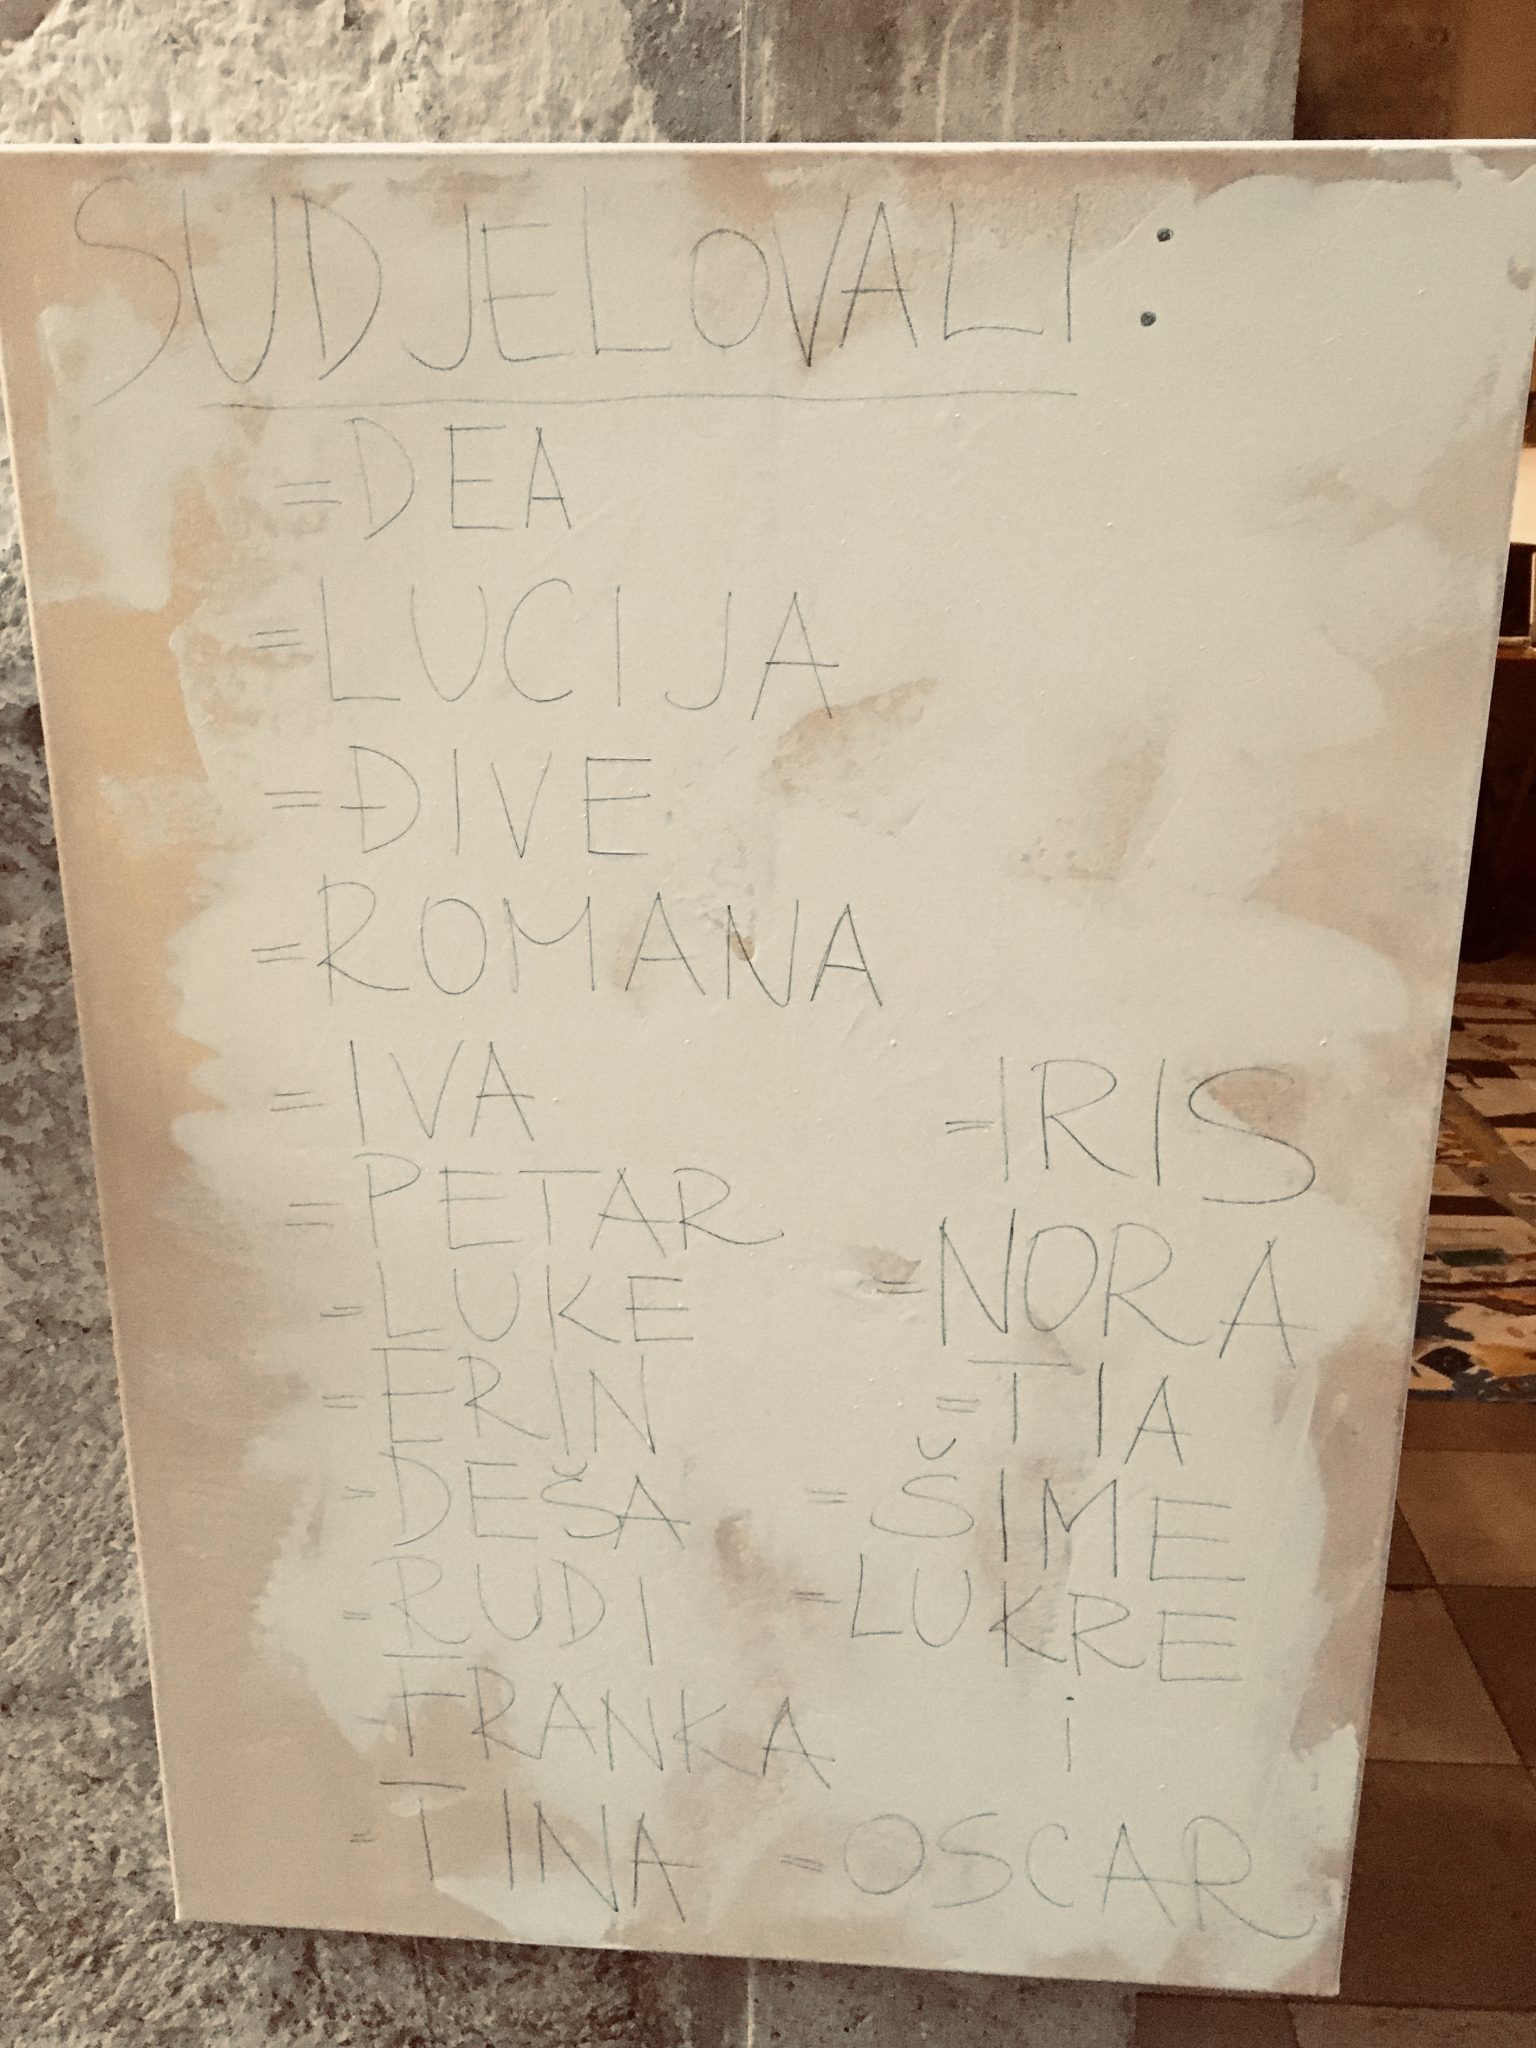 SUDJELOVALI:
=DEA
=LUCIJA
=ĐIVE
=ROMANA
=IVA
=PETAR
=LUKE
=ERIN
=DEŠA
=RUDI
=FRANKA
=TINA
=IRIS
=NORA
=TIA
=ŠIME
=LUKRE
i
=OSCAR